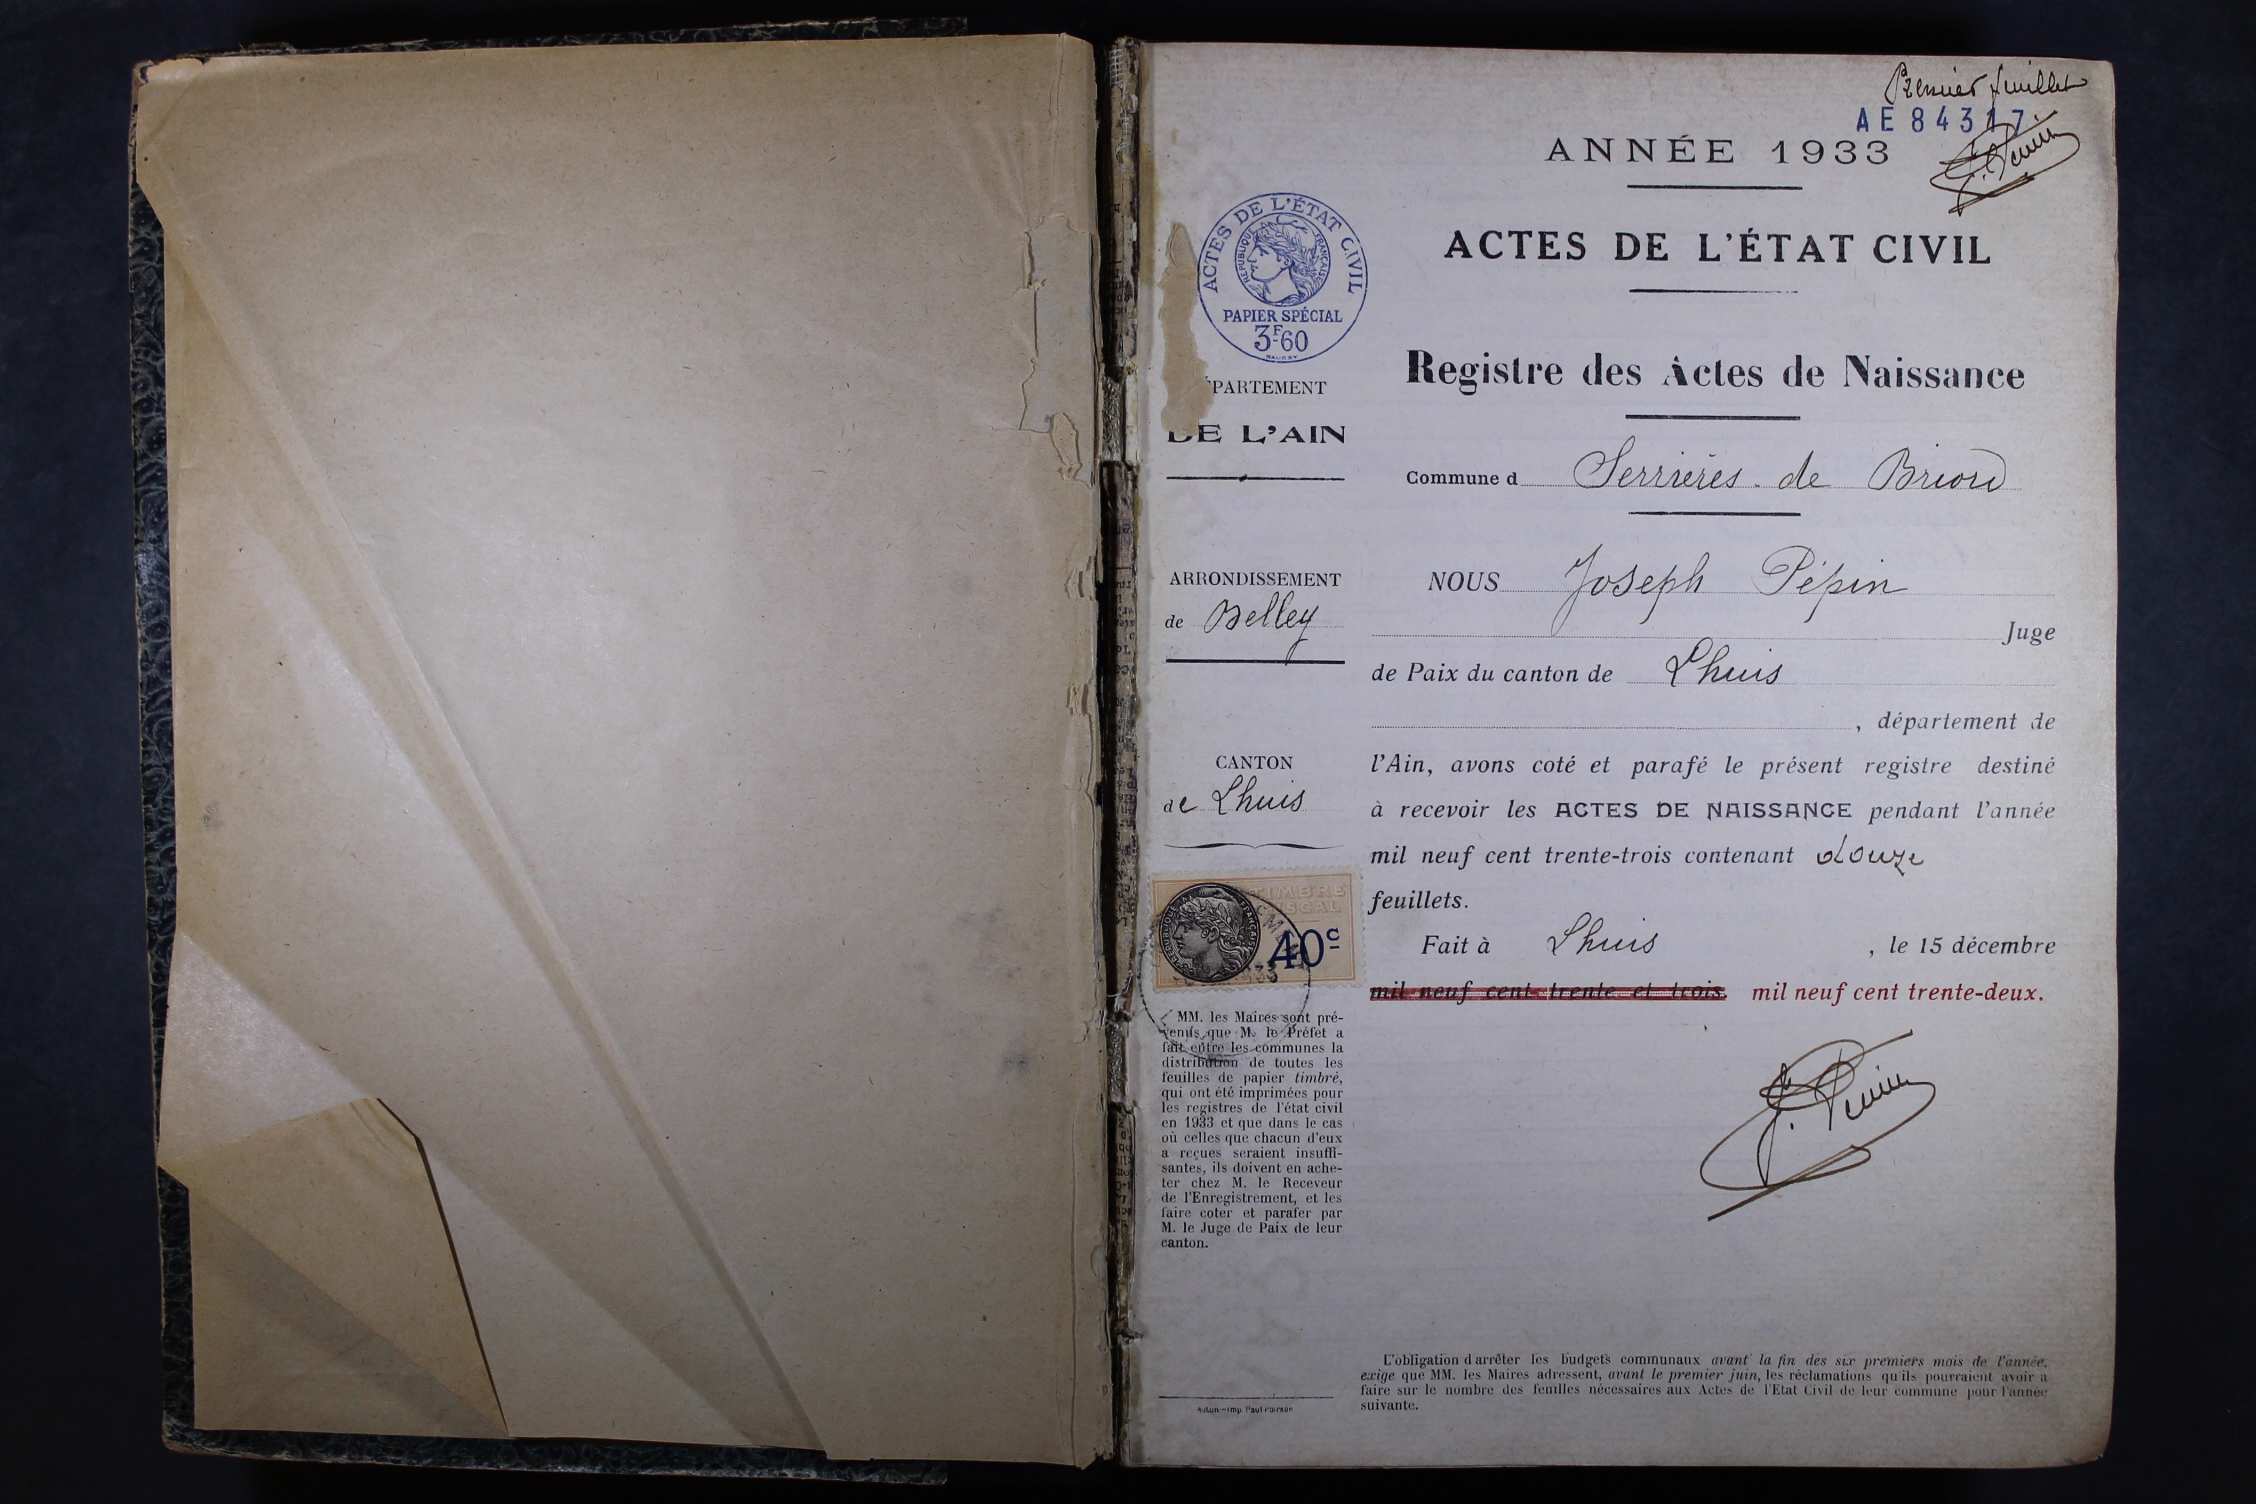 Premier feuillet
AE 84317
ANNÉE 1933
J. Pépin
ACTES DE L'ÉTAT CIVIL
RÉPUBLIQUE FRANÇAISE
PAPIER SPÉCIAL
3F60
ÉPARTEMENT
DE L'AIN
ARRONDISSEMENT
de Belley
CANTON
de Lhuis
TIMBRE
FISCAL
RÉPUBLIQUE FRANÇAISE
40c
MM. les Maires sont pré-
venus que M. le Préfet a
fait entre les communes la
distribution de toutes les
feuilles de papier timbré,
qui ont été imprimées pour
les registres de l'état civil
en 1933 et que dans le cas
où celles que chacun d'eux
a reçues seraient insuffi-
santes, ils doivent en ache-
ter chez M. le Receveur
de l'Enregistrement, et les
faire coter et parafer par
M. le Juge de Paix de leur
canton.
Autun.—Imp. Paul Poirson
ACTES DE L'ÉTAT CIVIL
Registre des Actes de Naissance
Commune d Serrières-de Briord
NOUS Joseph Pépin
Juge
de Paix du canton de Lhuis
, département de
l'Ain, avons coté et parafé le présent registre destiné
à recevoir les ACTES DE NAISSANCE pendant l'année
mil neuf cent trente-trois contenant douze
feuillets.
Fait à Lhuis, le 15 décembre
mil neuf cent trente et trois. mil neuf cent trente-deux.
J. Pépin
L'obligation d'arrêter les budgets communaux avant la fin des six premiers mois de l'année,
exige que MM. les Maires adressent, avant le premier juin, les réclamations qu'ils pourraient avoir à
faire sur le nombre des feuilles nécessaires aux Actes de l'Etat Civil de leur commune pour l'année
suivante.